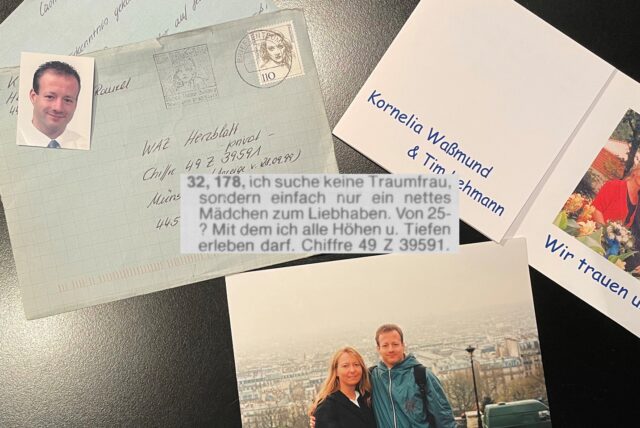 110
Pauxel
WAZ Herzblatt
privat -
Chiffre 49 Z 39591
Müns
445
32, 178, ich suche keine Traumfrau,
sondern einfach nur ein nettes
Mädchen zum Liebhaben. Von 25-
? Mit dem ich alle Höhen u. Tiefen
erleben darf. Chiffre 49 Z 39591.
Kornelia Waßmund
& Tim Lehmann
Wir trauen u